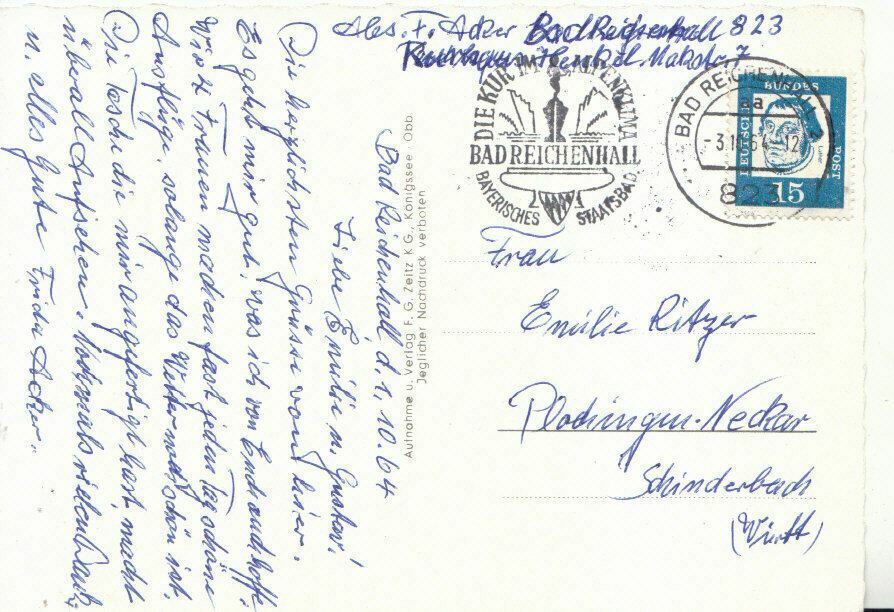 Abs. F. Acker Bad Reichenhall 823
DIE KUR IM ALPENKLIMA
BAD REICHENHALL
BAYERISCHES STAATSBAD
BAD REICHENHALL 2
aa
-3.10.64.-12
823
DEUTSCHE BUNDESPOST
Luther
15
Frau
Emilie Ritzer
Plochingen-Neckar
Schinderbach
(Württ)
Aufnahme u. Verlag F. G. Zeitz K G., Königssee - Obb.
Jeglicher Nachdruck verboten
Bad Reichenhall d. 1.10.64
Liebe Emilie u. Gustav!
Die herzlichsten Grüsse von hier.
Es geht mir gut, was ich von Euch auch hoffe.
Wir 4 Frauen machen fast jeden Tag schöne
Ausflüge, solange das Wetter noch schön ist.
Die Tasche die mir angefertigt hast, macht
überall Aufsehen. Nochmals vielen Dank
u. alles Gute Frida Acker.